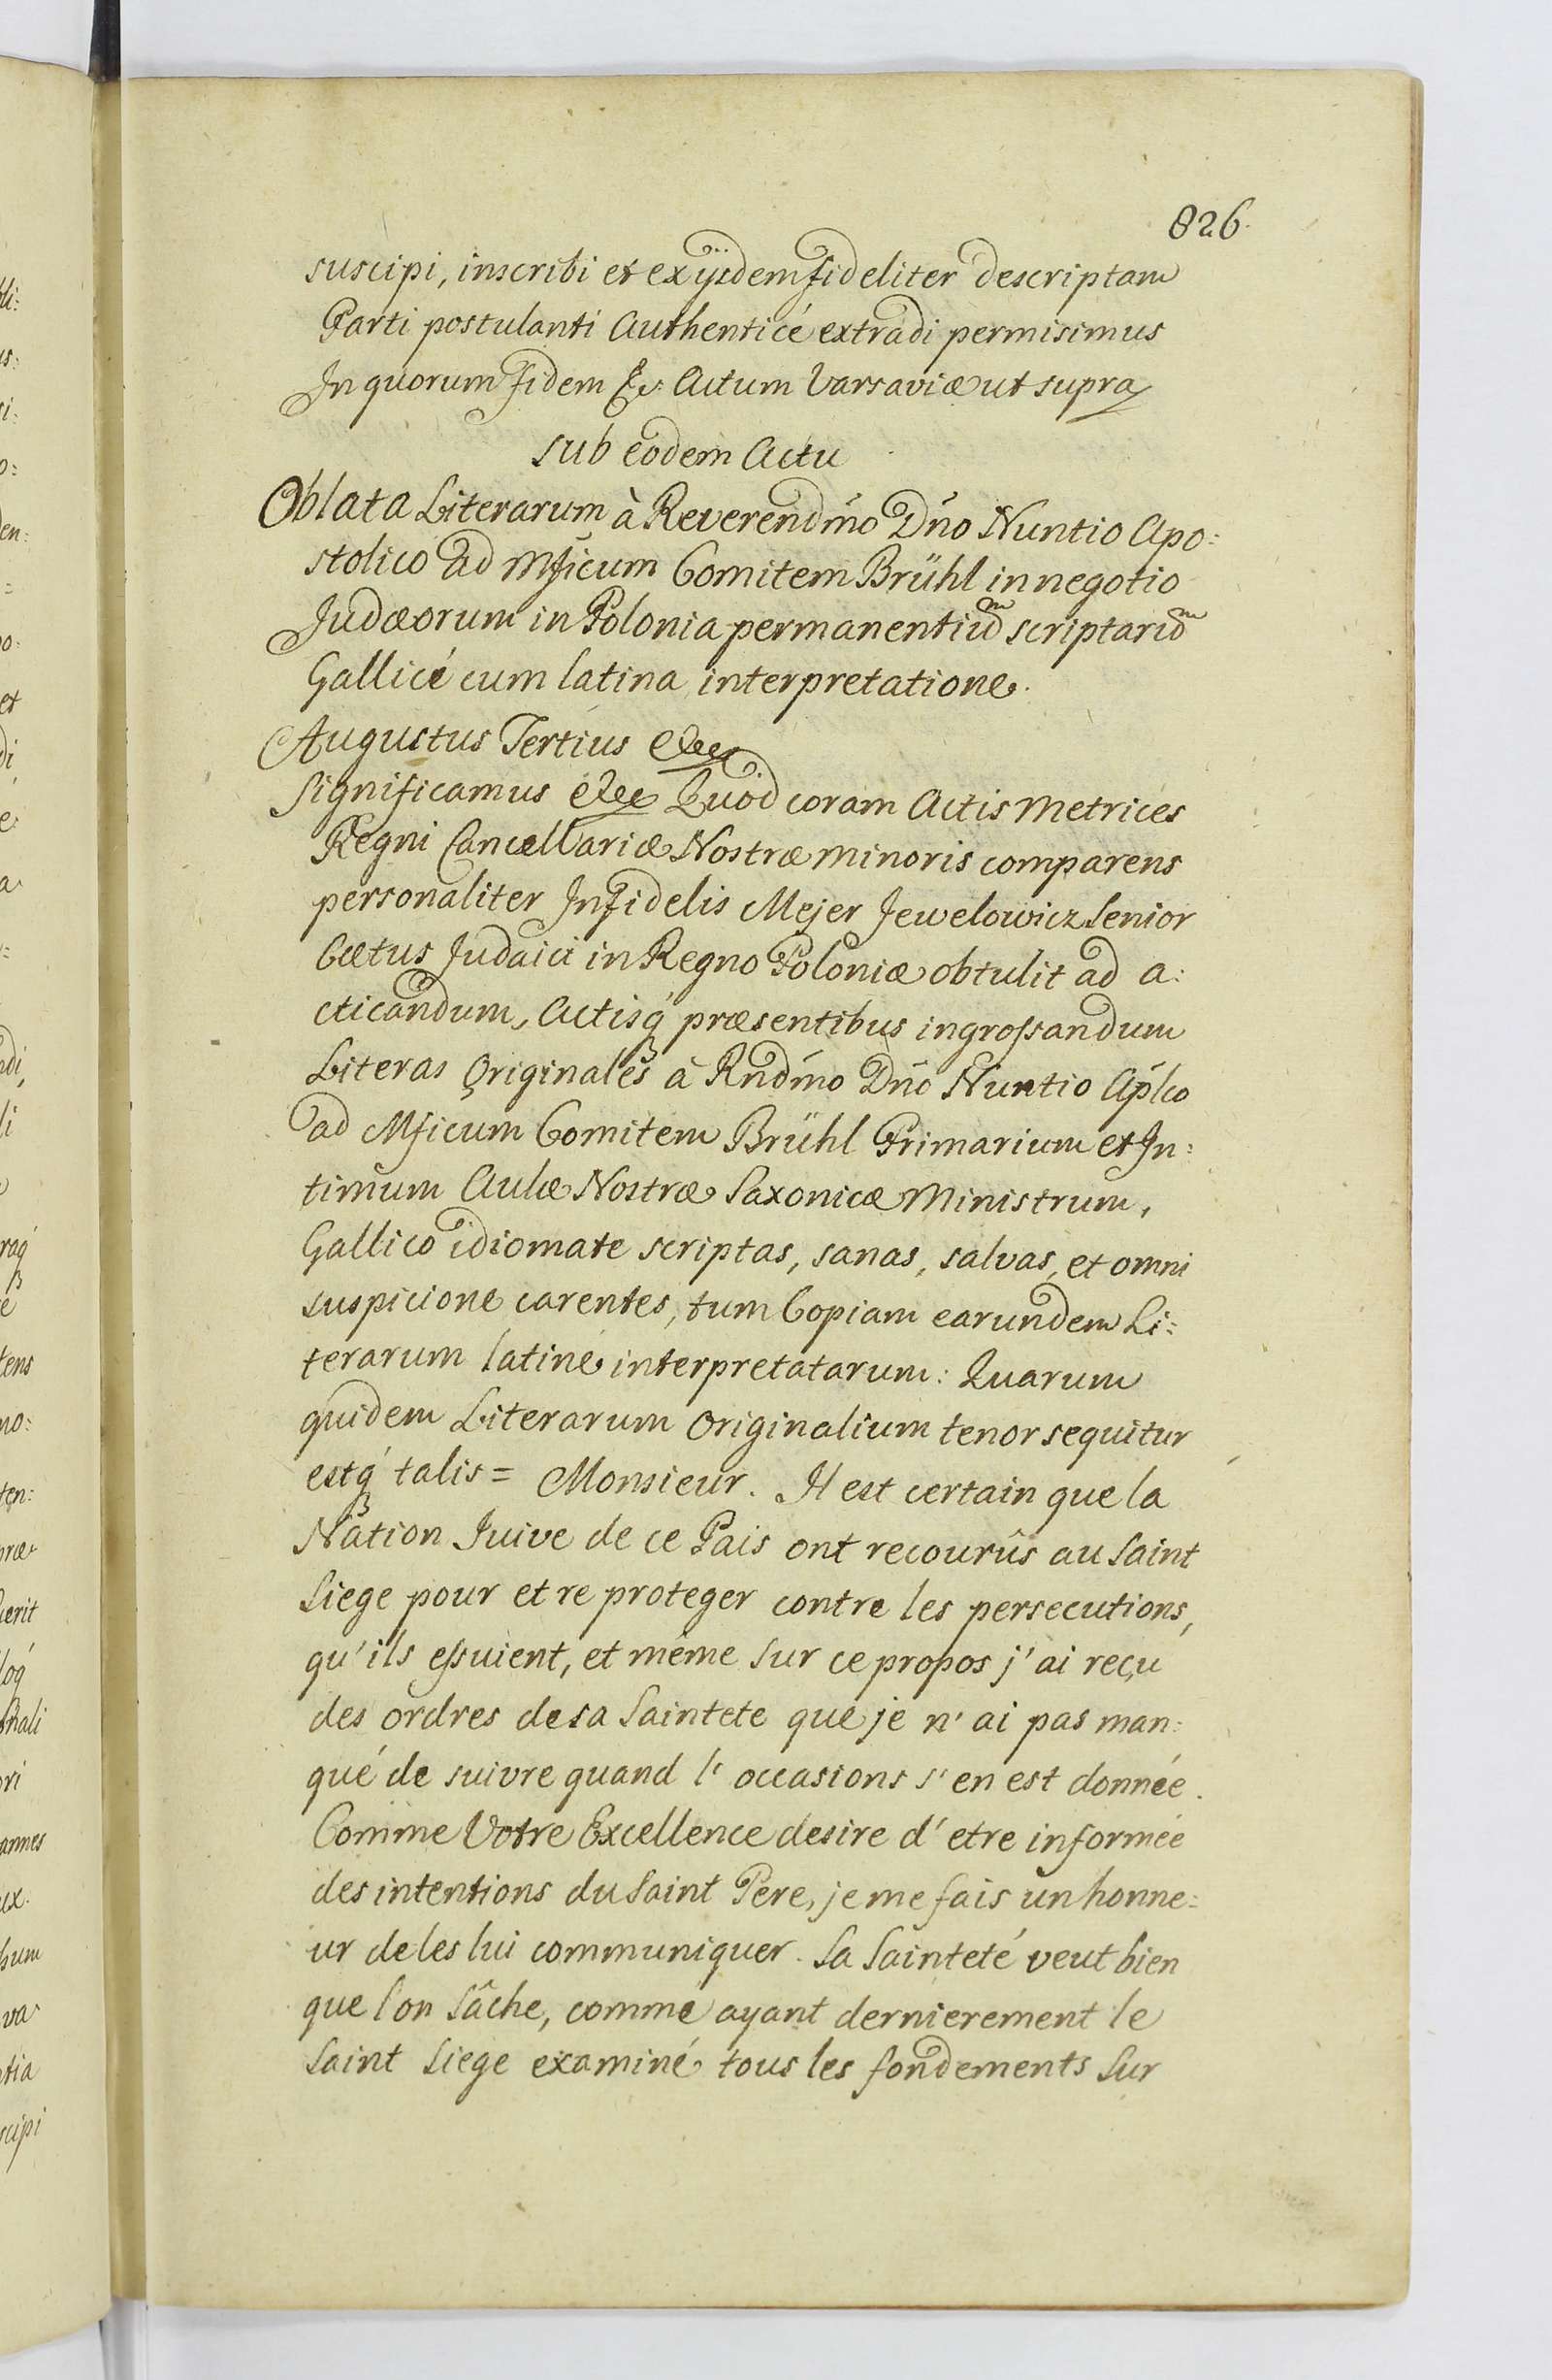 826.
suscipi, inscribi et ex ijsdem fideliter descriptam
Parti postulanti Authenticé extradi permisimus
In quorum fidem &c. Actum Varsaviæ ut supra
sub eodem Actu
Oblata Literarum à Reverendm̃o Dño Nuntio Apo:
stolico ad Mficum Comitem Brühl in negotio
Judæorum in Polonia permanentiũ scriptarũ
Gallicé cum latina interpretatione.
Augustus Tertius &&
Significamus && Quod coram Actis Metrices
Regni Cancellariæ Nostræ minoris comparens
personaliter Infidelis Mejer Jewelowicz Senior
Cætus Judaici in Regno Poloniæ obtulit ad a:
cticandum, Actisq́ præsentibus ingrossandum
Literas Originales à Rndm̃o Dño Nuntio Aplco
ad Mficum Comitem Brühl Primarium et In:
timum Aulæ Nostræ Saxonicæ Ministrum,
Gallico idiomate scriptas, sanas, salvas, et omni
suspicione carentes, tum Copiam earundem Li:
terarum latiné interpretatarum: Quarum
quidem Literarum Originalium tenor sequitur
estq́ talis = Monsieur. Il est certain que la
Nation Juive de ce Pais ont recourûs au Saint
Siege pour etre proteger contre les persecutions,
qu'ils essuient, et même sur ce propos j'ai reçu
des ordres de sa Saintete que je n'ai pas man:
qué de suivre quand l'occasions s'en est donnée.
Comme Votre Excellence desire d'etre informée
des intentions du Saint Pere, je me fais un honne:
ur de les lui communiquer. Sa Sainteté veut bien
que l'on sâche, comme ayant dernierement le
Saint Siege examiné tous les fondements sur